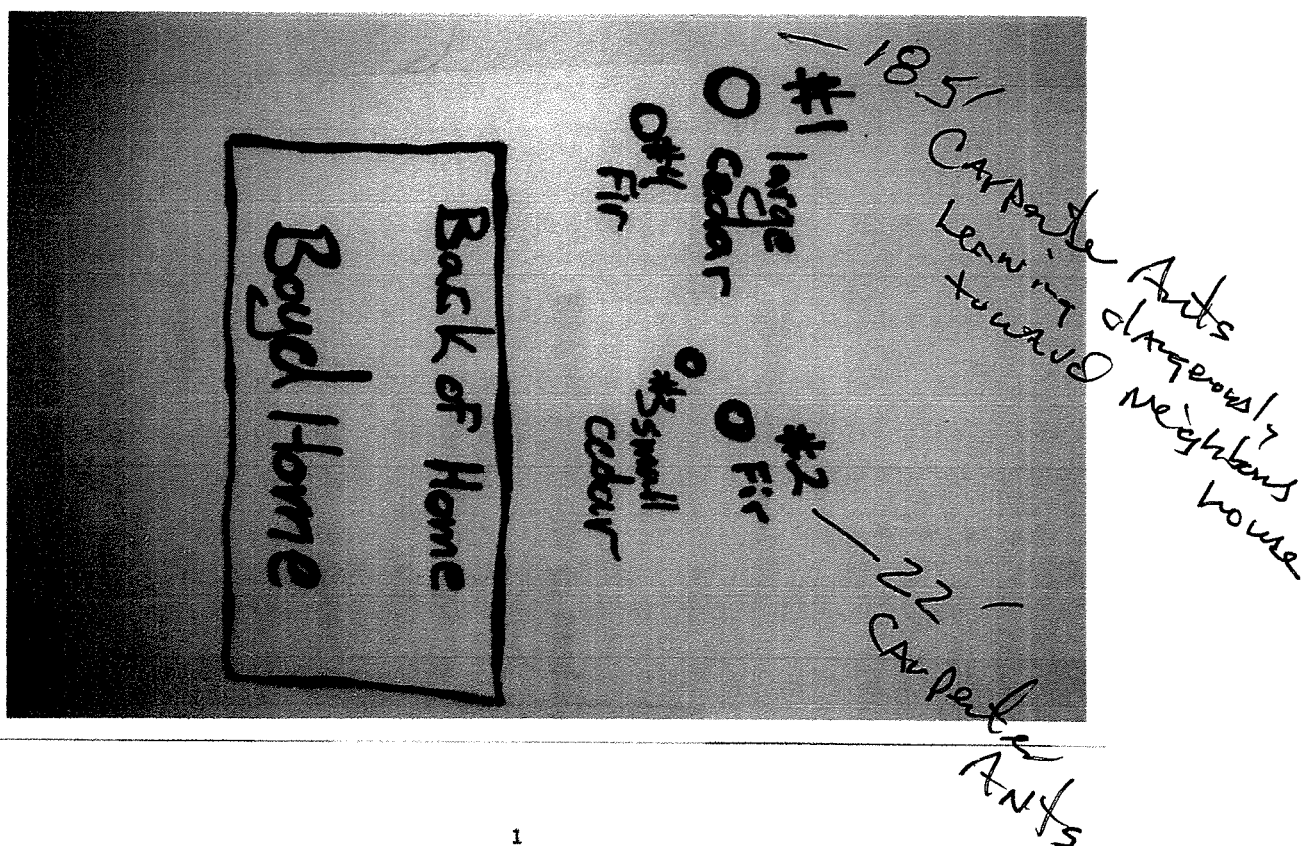 18.5'
Carpente Ants
Leaning dangerously
toward Neighbors
house
#1 large
cedar
#4
Fir
#2
Fir
22'
Carpenter
Ants
#3 small
cedar
Back of Home
Boyd Home
1